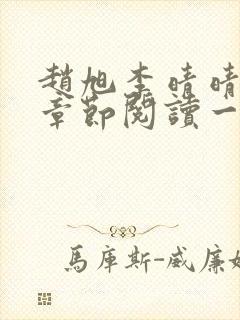 趙旭李晴晴
章節閱讀一
馬庫斯-威廉姆